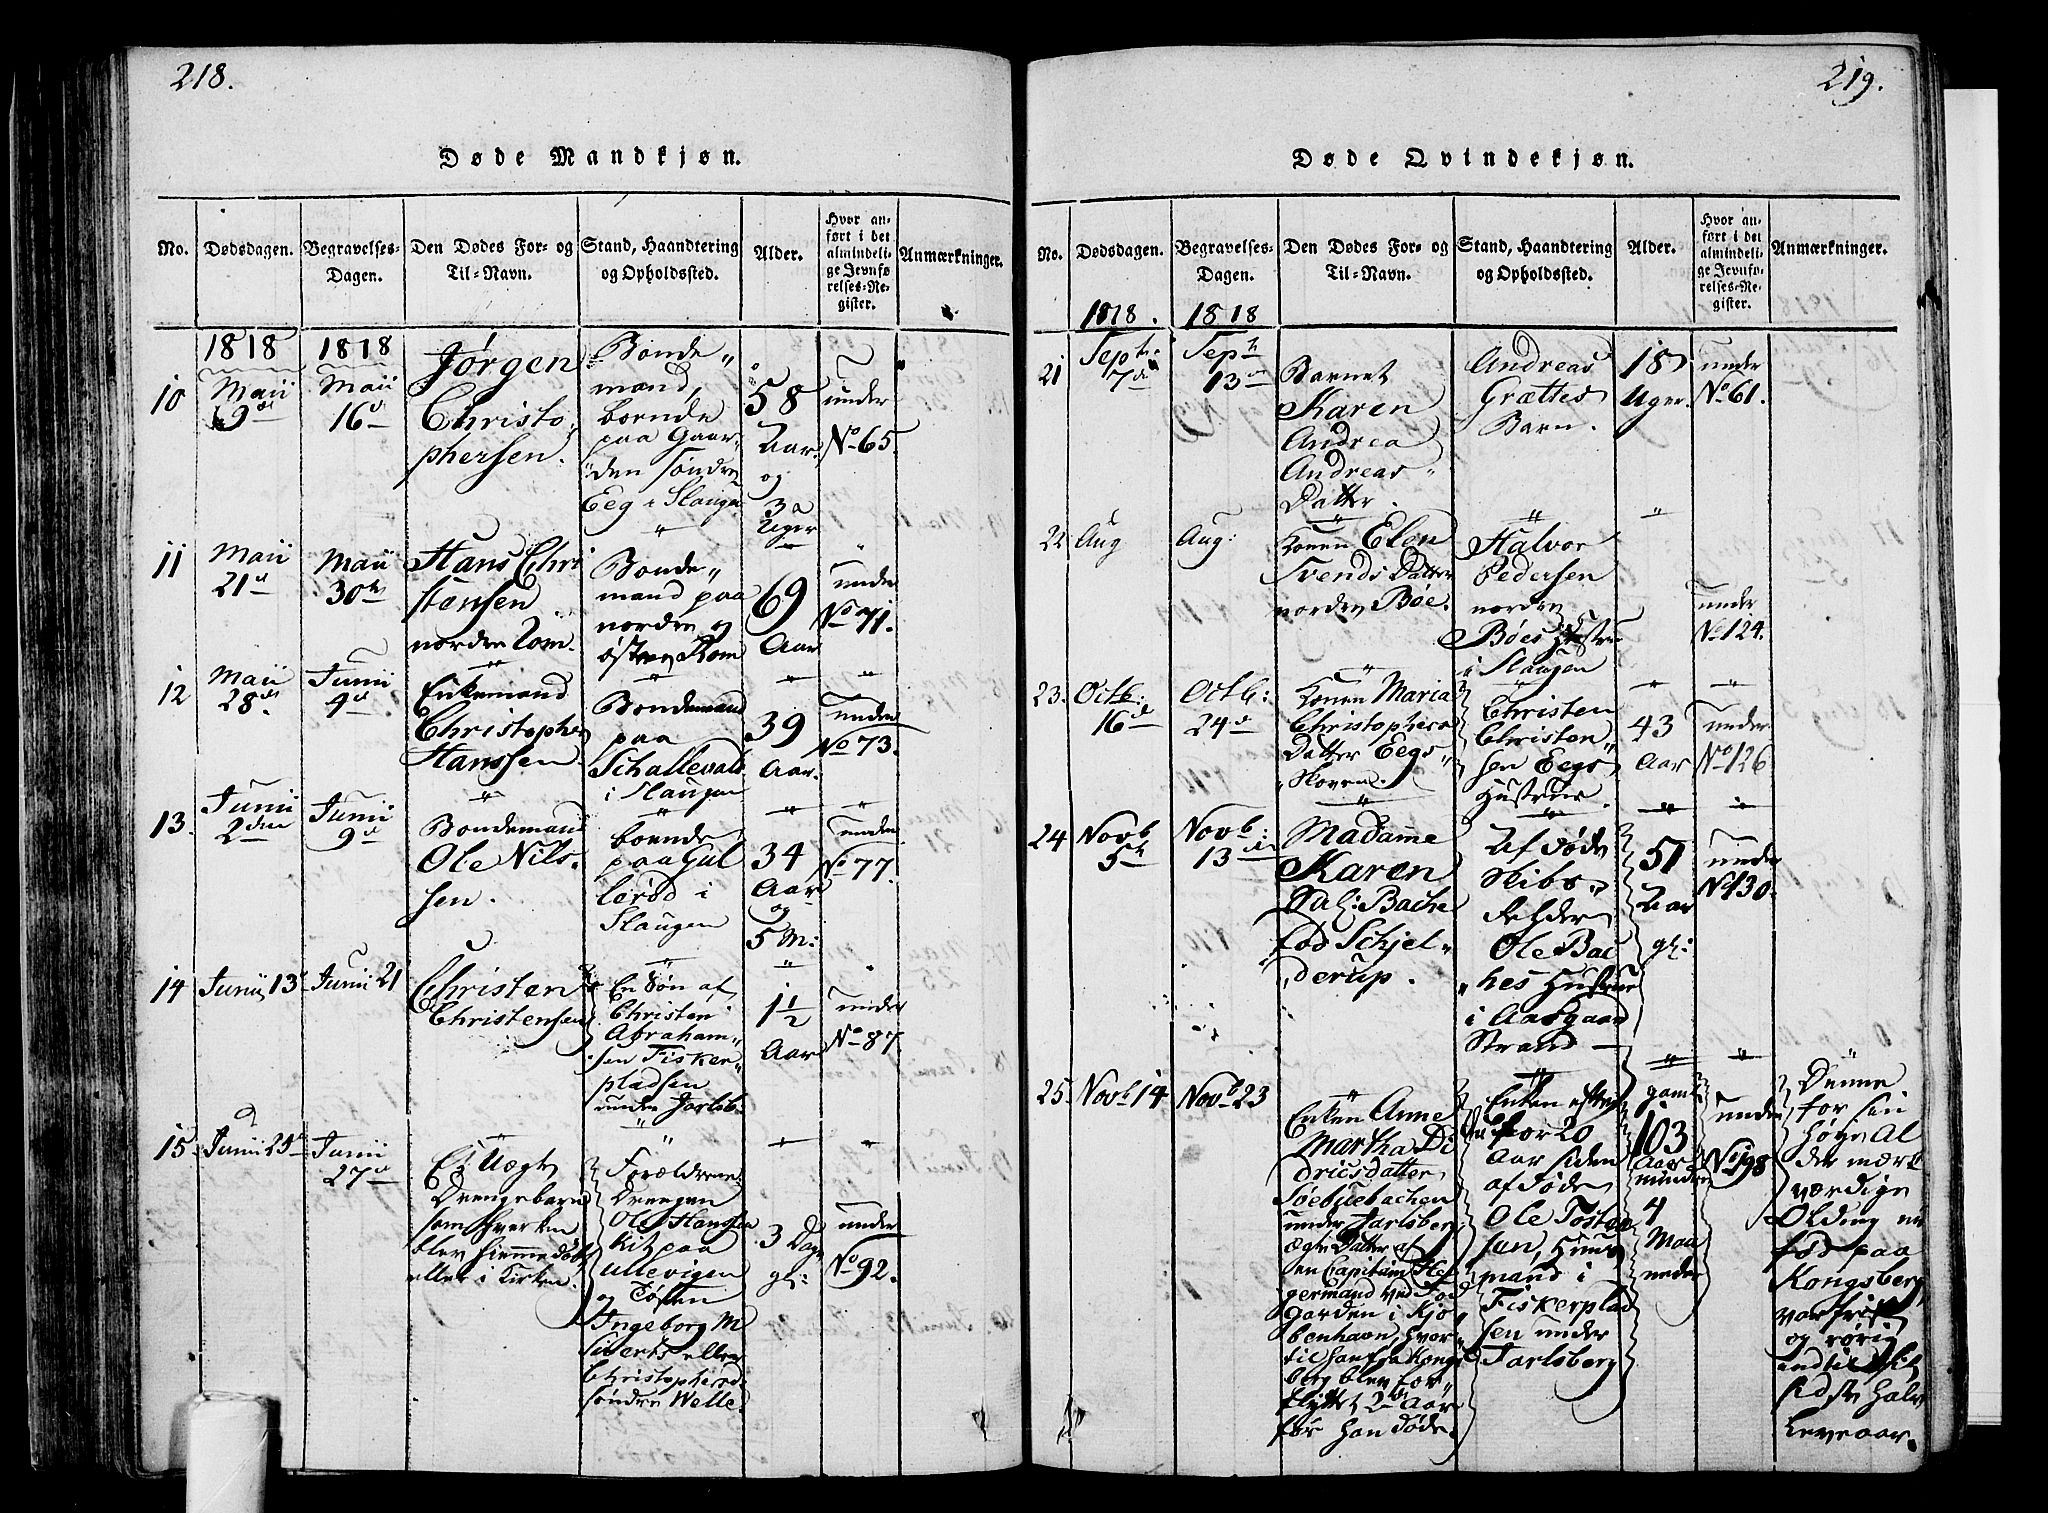 218.
Døde Mandkjøn.
No.
Dødsdagen.
Begravelses-
Dagen.
Den Dødes For- og
Til-Navn.
Stand, Haandtering
og Opholdssted.
Alder.
Hvor an-
ført i det
almindeli-
ge Jevnfø-
relses-Re-
gister.
Anmærkninger.
10
1818
Maii
9de
1818
Maii
16d
Jørgen
Christo-
phersen.
Bonde
mand,
boende
paa Gaar-
den Søndre
Eeg i Slaugen
58
Aar
og
3
Uger
under
No 65.
11
Maii
21d
Maii
30te
Hans Chri
stensen
nordre Rom.
Bonde
mand paa
nordre og
østre Rom
69
Aar
under
No 71.
12
Maii
28de
Junii
4d
Enkemand
Christopher
Hanssen
Bondemand
paa
Schallevald
i Slaugen
39
Aar.
under
No 73.
13.
Junii
2den
Junii
9d
Bondemand
Ole Nils-
sen.
boende
paa Gul
lerød i
Slaugen
34
Aar
og
5 M:
under
No 77.
14
Junii 13d
Junii 21
Christen
Christensen
En Søn af
Christen
Abraham-
sen Fisker-
pladsen
under Jarlsb.
1 1/2
Aar
under
No 87.
15.
Junii
Junii
27d
Et Uægte
Drengebarn
som hverken
blev hjemmedøbt
eller i Kirken.
Forældrene
Drengen
Ole Hanssen
paa
Ullevigen
og Tøsen
Ingeborg M
Siverts eller
Christophersd
søndre Welle.
3 Dage
gl:
under
No 92.
219.
Døde Qvindekjøn.
No.
Dødsdagen.
Begravelses-
Dagen.
Den Dødes For- og
Til-Navn.
Stand, Haandtering
og Opholdssted.
Alder.
Hvor an-
ført i det
almindeli-
ge Jevnfø-
relses-Re-
gister.
Anmærkninger.
1818.
1818
21
Septb:
7de
Septb
13de
Barnet
Karen
Andrea
Andreas
Datter.
Andreas
Grættes
Barn.
18
Uger.
under
No 61.
22
Aug
Aug:
Konen Elen
Svends Datter
nordre Bøe.
Halvor
Pedersen
nordre
Bøes Hustru
i Slaugen
under
No 124.
23.
Octb:
16d
Octb:
24d
Konen Maria
Christophers
Datter Eegs-
skoven.
Christen
Christen
sen Eegs
Hustrue.
43
Aar
under
No 126
24
Novb
5te
Novb:
13de
Madame
Karen
Sal: Bache
fød Schjel-
derup.
Afdøde
Skibs-
Rehder
Ole Bac
hes Hustrue
i Aasgaard
Strand
51
Aar
gl:
under
No 130.
25.
Novb 14
Novb 23
Enken Anne
Martha Di
dricsdatter
Søebuebachen
under Jarlsberg,
ægte Datter af
en Capitain
germand ved
garden i Kjø
benhavn, hvor
til han fra Kongs
berg blev for-
flyttet 2 Aar
før han døde.
Enken efter
for 20
Aar siden
afdøde
Ole Tosten
sen, Huus
mand i
Fiskerplad
sen under
Jarlsberg
gaml
103
Aar
mindre
4
Maa
neder
under
No 198
Denne
for sin
høye Al
der mærk
værdige
Olding er
fød paa
Kongsberg,
var frisk
og rørig
indtil hit
sidste halv
Leveaar.